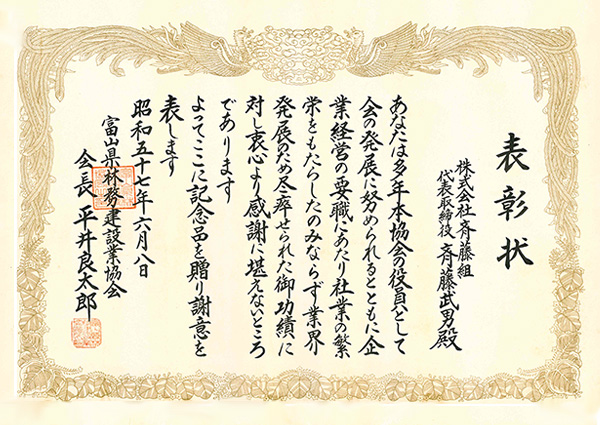 表彰状
株式会社斉藤組
代表取締役 斉藤武男殿
あなたは多年本協会の役員として
会の発展に努められるとともに企
業経営の要職にあたり社業の繁
栄をもたらしたのみならず業界
発展のため尽瘁せられた御功績に
対し衷心より感謝に堪えないところ
であります
よってここに記念品を贈り謝意を
表します
昭和五十七年六月八日
富山県林務建設業協会
会長 平井良太郎